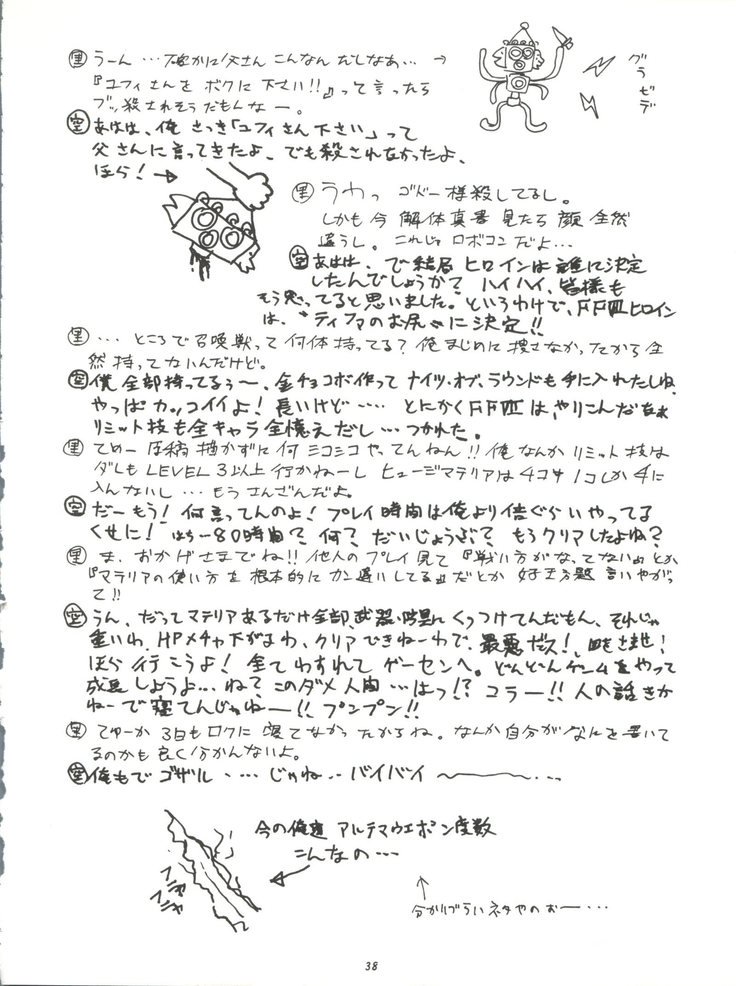 里 うーん…確かに父さん こんなん だしなあ… →
『ユフィさんを ボクに下さい!!』って言ったら
ブッ殺されそうだもんなー。
グラビデ
空 あはは、俺 さっき「ユフィさん下さい」って
父さんに言ってきたよ、でも殺されなかったよ、
ほら! →
里 うわっ ゴドー様殺してるし。
しかも今 解体真書 見たら 顔 全然
違うし。これじゃ ロボコン だよ…
空 あはは、で結局 ヒロインは 誰に決定
したんでしょうか? ハイハイ、皆様も
そう思ってると思いました。というわけで、FFⅦヒロイン
は、"ティファのお尻"に決定!!
里 … ところで召喚獣って 何体持ってる? 俺 まじめに 捜さなかったから全
然 持ってないんだけど。
空 僕 全部持ってるぅ〜、金チョコボ作って ナイツ・オブ・ラウンドも手に入れたしね
やっぱ カッコイイよ! 長いけど…… とにかくFFⅦは、やりこんだなぁ
リミット技も全キャラ全憶えだし…つかれた。
里 てめー 原稿描かずに何 ニコニコ やってんねん!! 俺なんか リミット技は
ダレも LEVEL 3以上 行かねーし ヒュージマテリアは4コ中1コしか手に
入んないし… もう さんざんだよ。
空 だーもう! 何言ってんのよ! プレイ時間は俺より倍ぐらいやってる
くせに! はらー80時間? 何? だいじょうぶ? もうクリアしたよね?
里 ま、おかげさまでね!! 他人のプレイ見て『戦い方がなってない』とか
『マテリアの使い方を 根本的に カン違いしてる』だとか 好き方題 言いやがっ
て!!
空 うん、だってマテリアあるだけ全部、武器・防具に くっつけてんだもん、それじゃ
重いわ、HPメチャ下がるわ、クリアできねーわで、最悪だス!
ほら 行こうよ! 全てわすれて ゲーセンへ。どんどんゲームをやって
成長しようよ…、ね? このダメ人間…はっ!? コラー!! 人の話きか
ねーで寝てんじゃねー!! プンプン!!
里 てゆーか 3日もロクに 寝てなかったからね。なんか自分がなんと書いて
るのかも 良く分かんないよ。
空 俺もで ゴザル …… じゃね‥ バイバイ 〜〜〜…
今の俺達 アルテマウエポン度数
こんなの…
フニャ
フニャ
↑
分かりづらいネタやのおー…
38